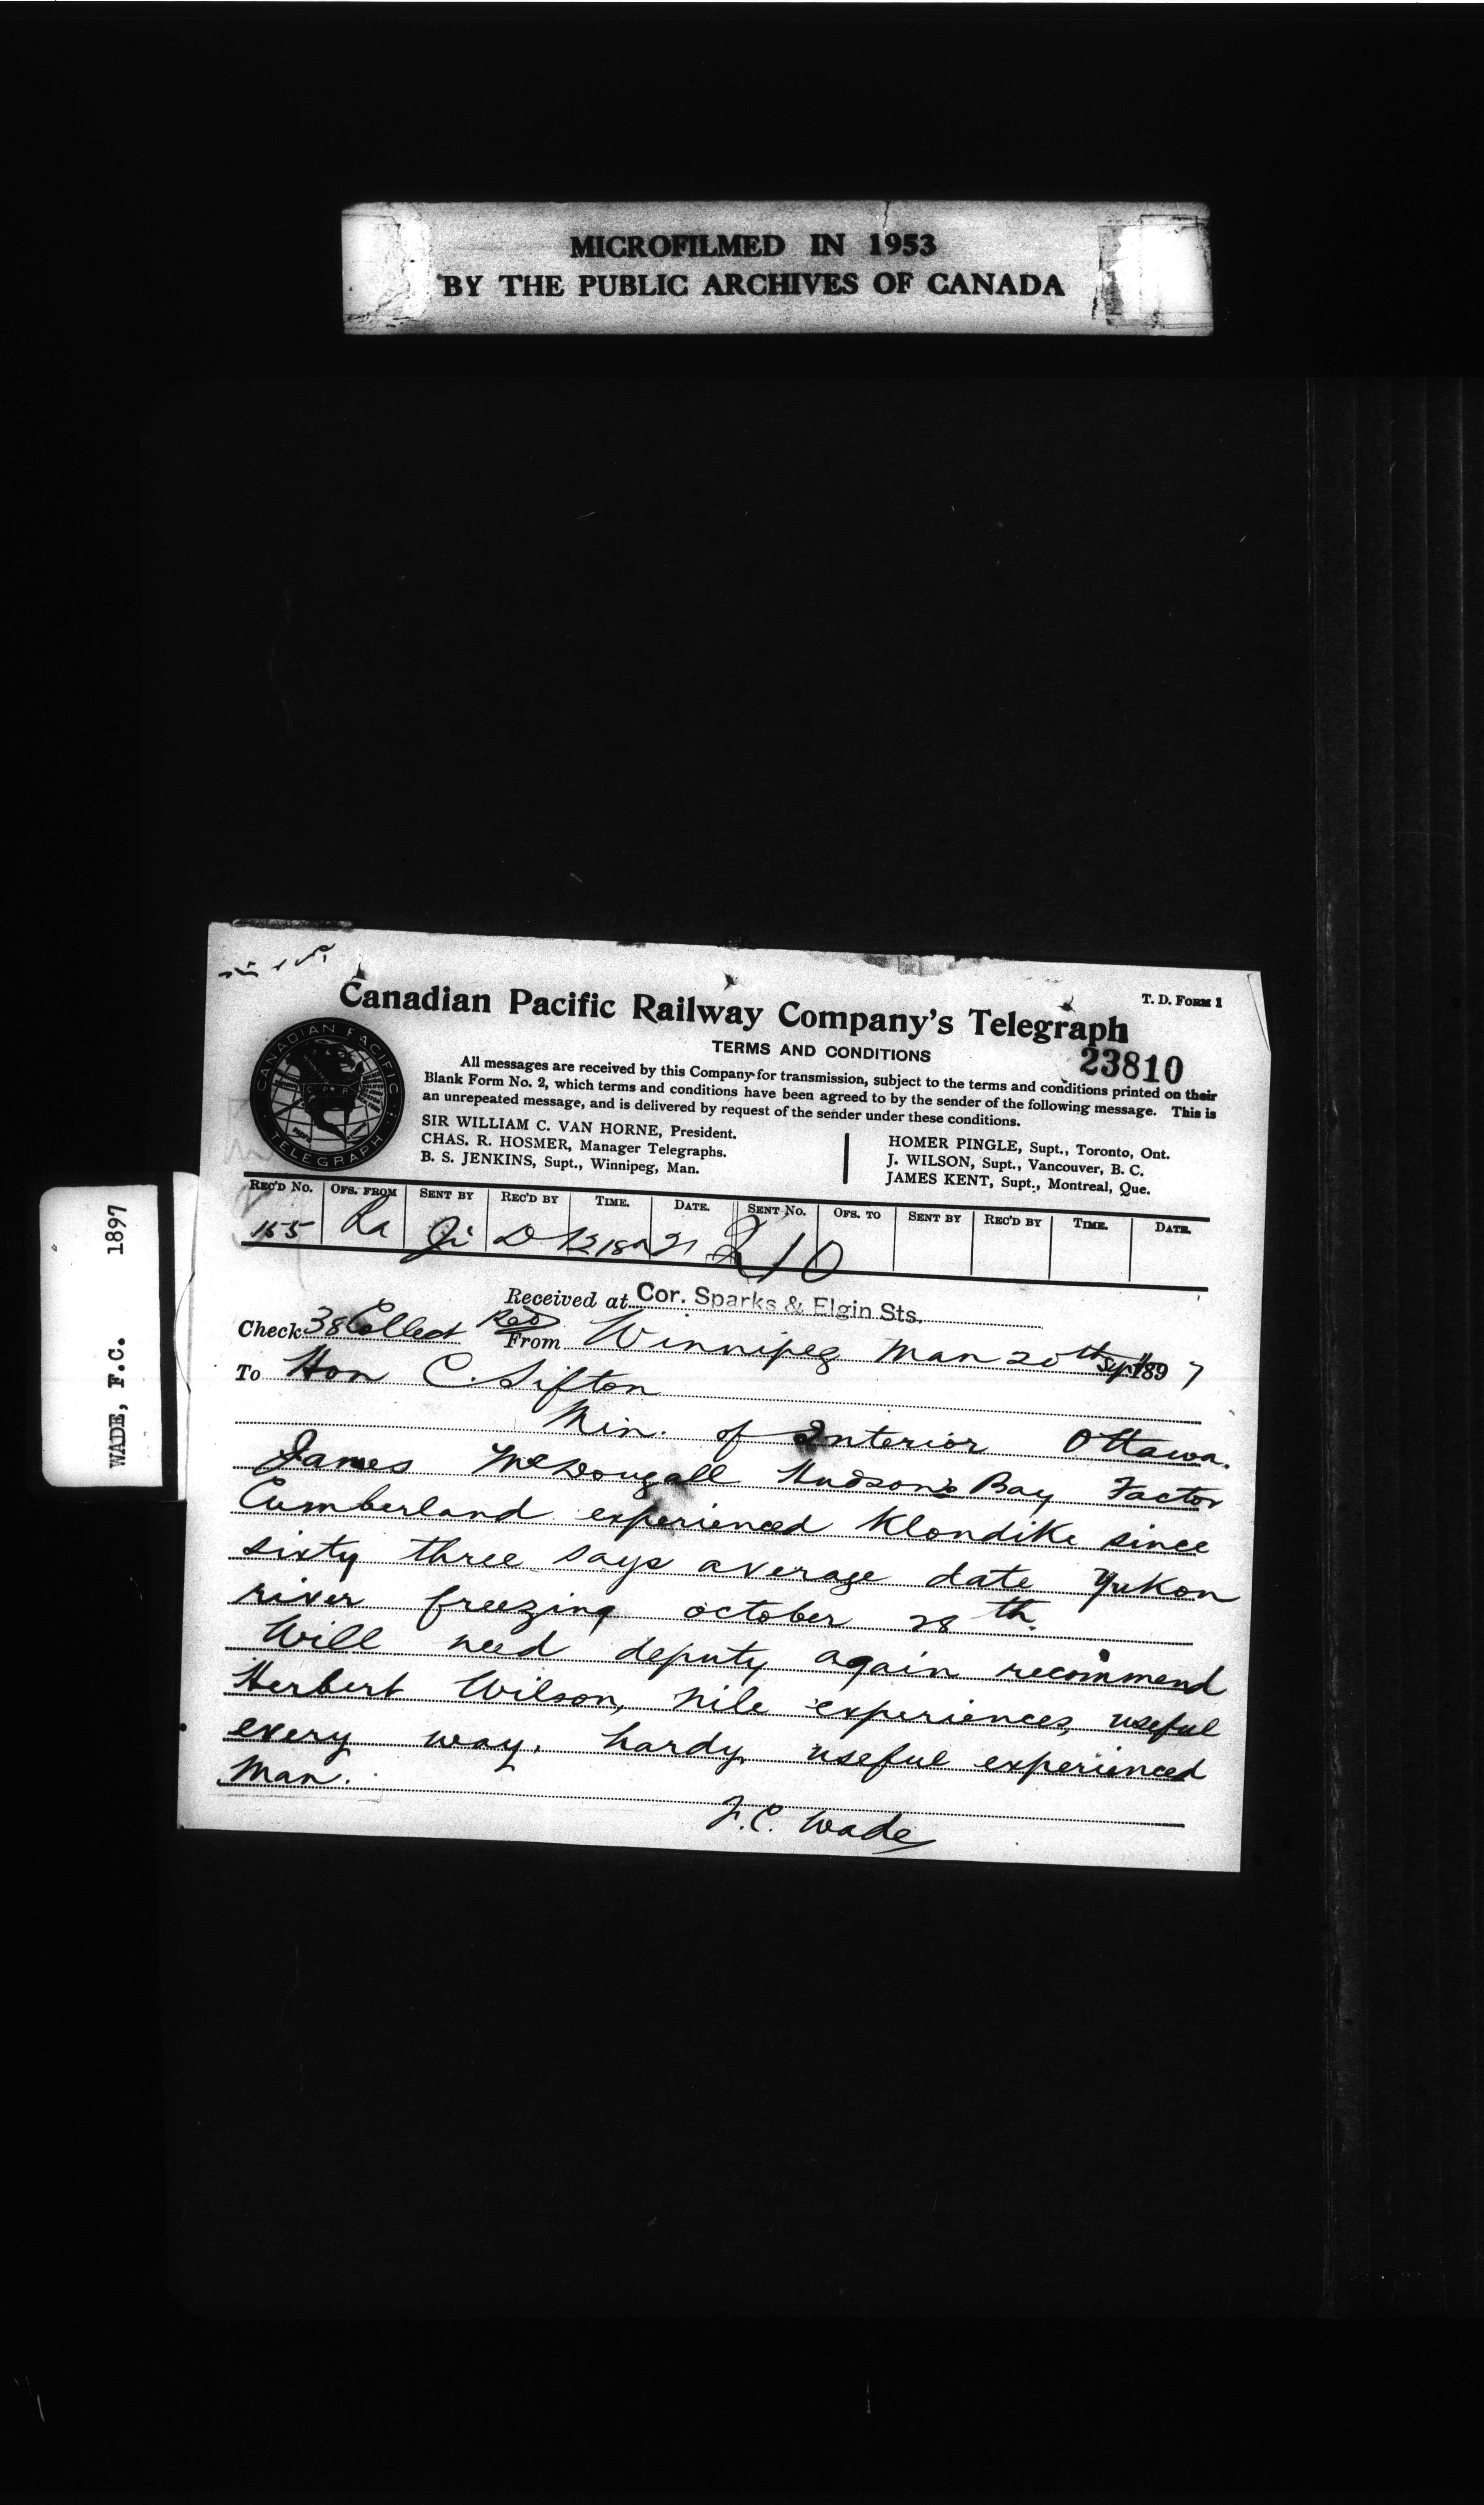 MICROFILMED IN 1953
BY THE PUBLIC ARCHIVES OF CANADA
WADE, F.C. 1897
Canadian Pacific Railway Company's Telegraph
T. D. FORM 1
TERMS AND CONDITIONS
23810
All messages are received by this Company for transmission, subject to the terms and conditions printed on their
Blank Form No. 2, which terms and conditions have been agreed to by the sender of the following message. This is
an unrepeated message, and is delivered by request of the sender under these conditions.
CANADIAN PACIFIC
TELEGRAPH
SIR WILLIAM C. VAN HORNE, President.
CHAS. R. HOSMER, Manager Telegraphs.
B. S. JENKINS, Supt., Winnipeg, Man.
HOMER PINGLE, Supt., Toronto, Ont.
J. WILSON, Supt., Vancouver, B. C.
JAMES KENT, Supt., Montreal, Que.
REC'D NO. OFS. FROM SENT BY REC'D BY TIME. DATE. SENT NO. OFS. TO SENT BY REC'D BY TIME. DATE.
155 Ra Gi D 1218a 21 210
Received at Cor. Sparks & Elgin Sts.
Check 38 Collect From Winnipeg Man 20th Sept 1897
To Hon C. Sifton
Min. of Interior Ottawa.
James McDougall Hudson's Bay Factor
Cumberland experienced Klondike since
sixty three says average date Yukon
river freezing october 28th.
Will need deputy again recommend
Herbert Wilson, Nile experiences, useful
every way. hardy useful experienced
Man.
F.C. Wade